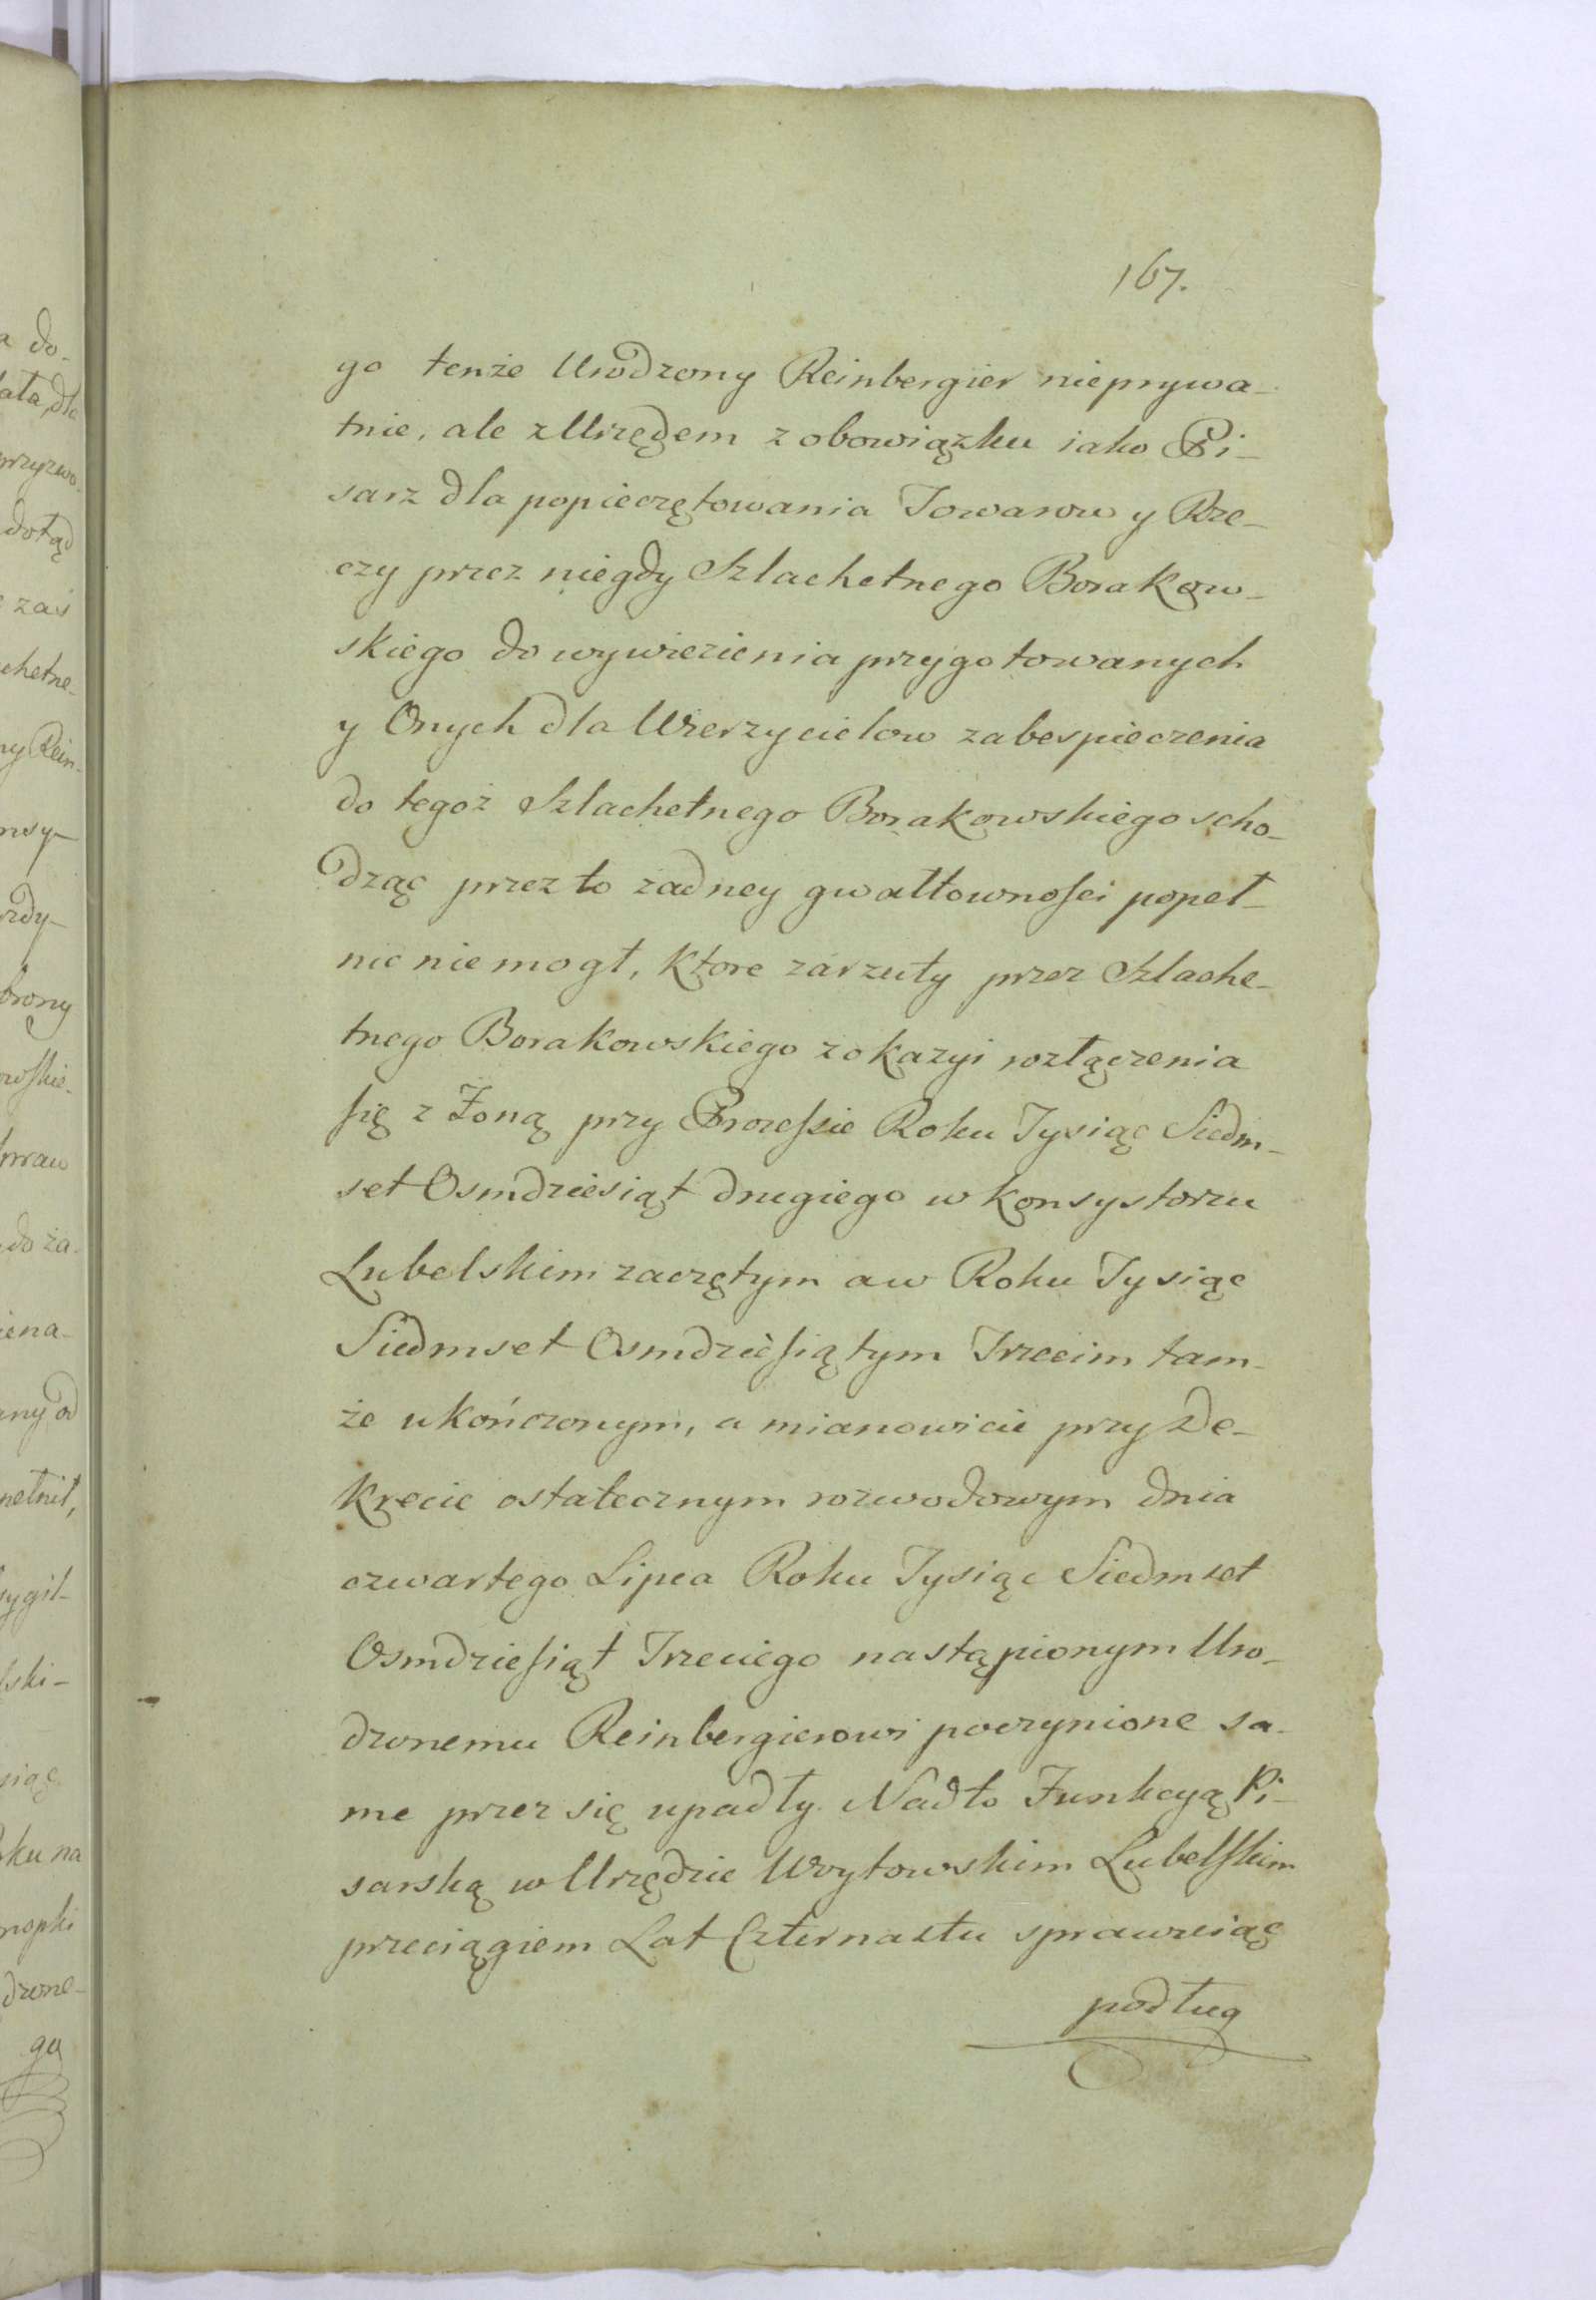 167.
go tenże Urodzony Reinbergier nieprywa-
tnie, ale z Urzędem z obowiązku iako Pi-
sarz dla popieczętowania Towarow y Rze-
czy przez niegdy Szlachetnego Borakow-
skiego do wywiezienia przygotowanych
y Onych dla Wierzycielow zabespieczenia
do tegoż Szlachetnego Borakowskiego scho-
dząc przez to zadney gwałtownosci popeł-
nic niemogł, Ktore zarzuty przez Szlache-
tnego Borakowskiego z okazyi rozłączenia
się z Zoną przy Processie Roku Tysiąc Siedm-
set Osmdziesiąt drugiego w Konsystorzu
Lubelskim zaczętym a w Roku Tysiąc
Siedmset Osmdziesiątym Trzecim tam-
że ukończonym, a mianowicie przy De-
krecie ostatecznym rozwodowym dnia
czwartego Lipca Roku Tysiąc Siedmset
Osmdziesiąt Trzeciego nastąpionym Uro-
dzonemu Reinbergierowi poczynione sa-
me przez się upadły. Nadto Funkcyą Pi-
sarską w Urzędzie Woytowskim Lubelskim
przeciągiem Lat Czternastu sprawuiąc
podług
a do-
dotąd
zaś
chetne-
ny Rein-
brony
do za-
any od
ski-
siąc
ku na
dzone-
go